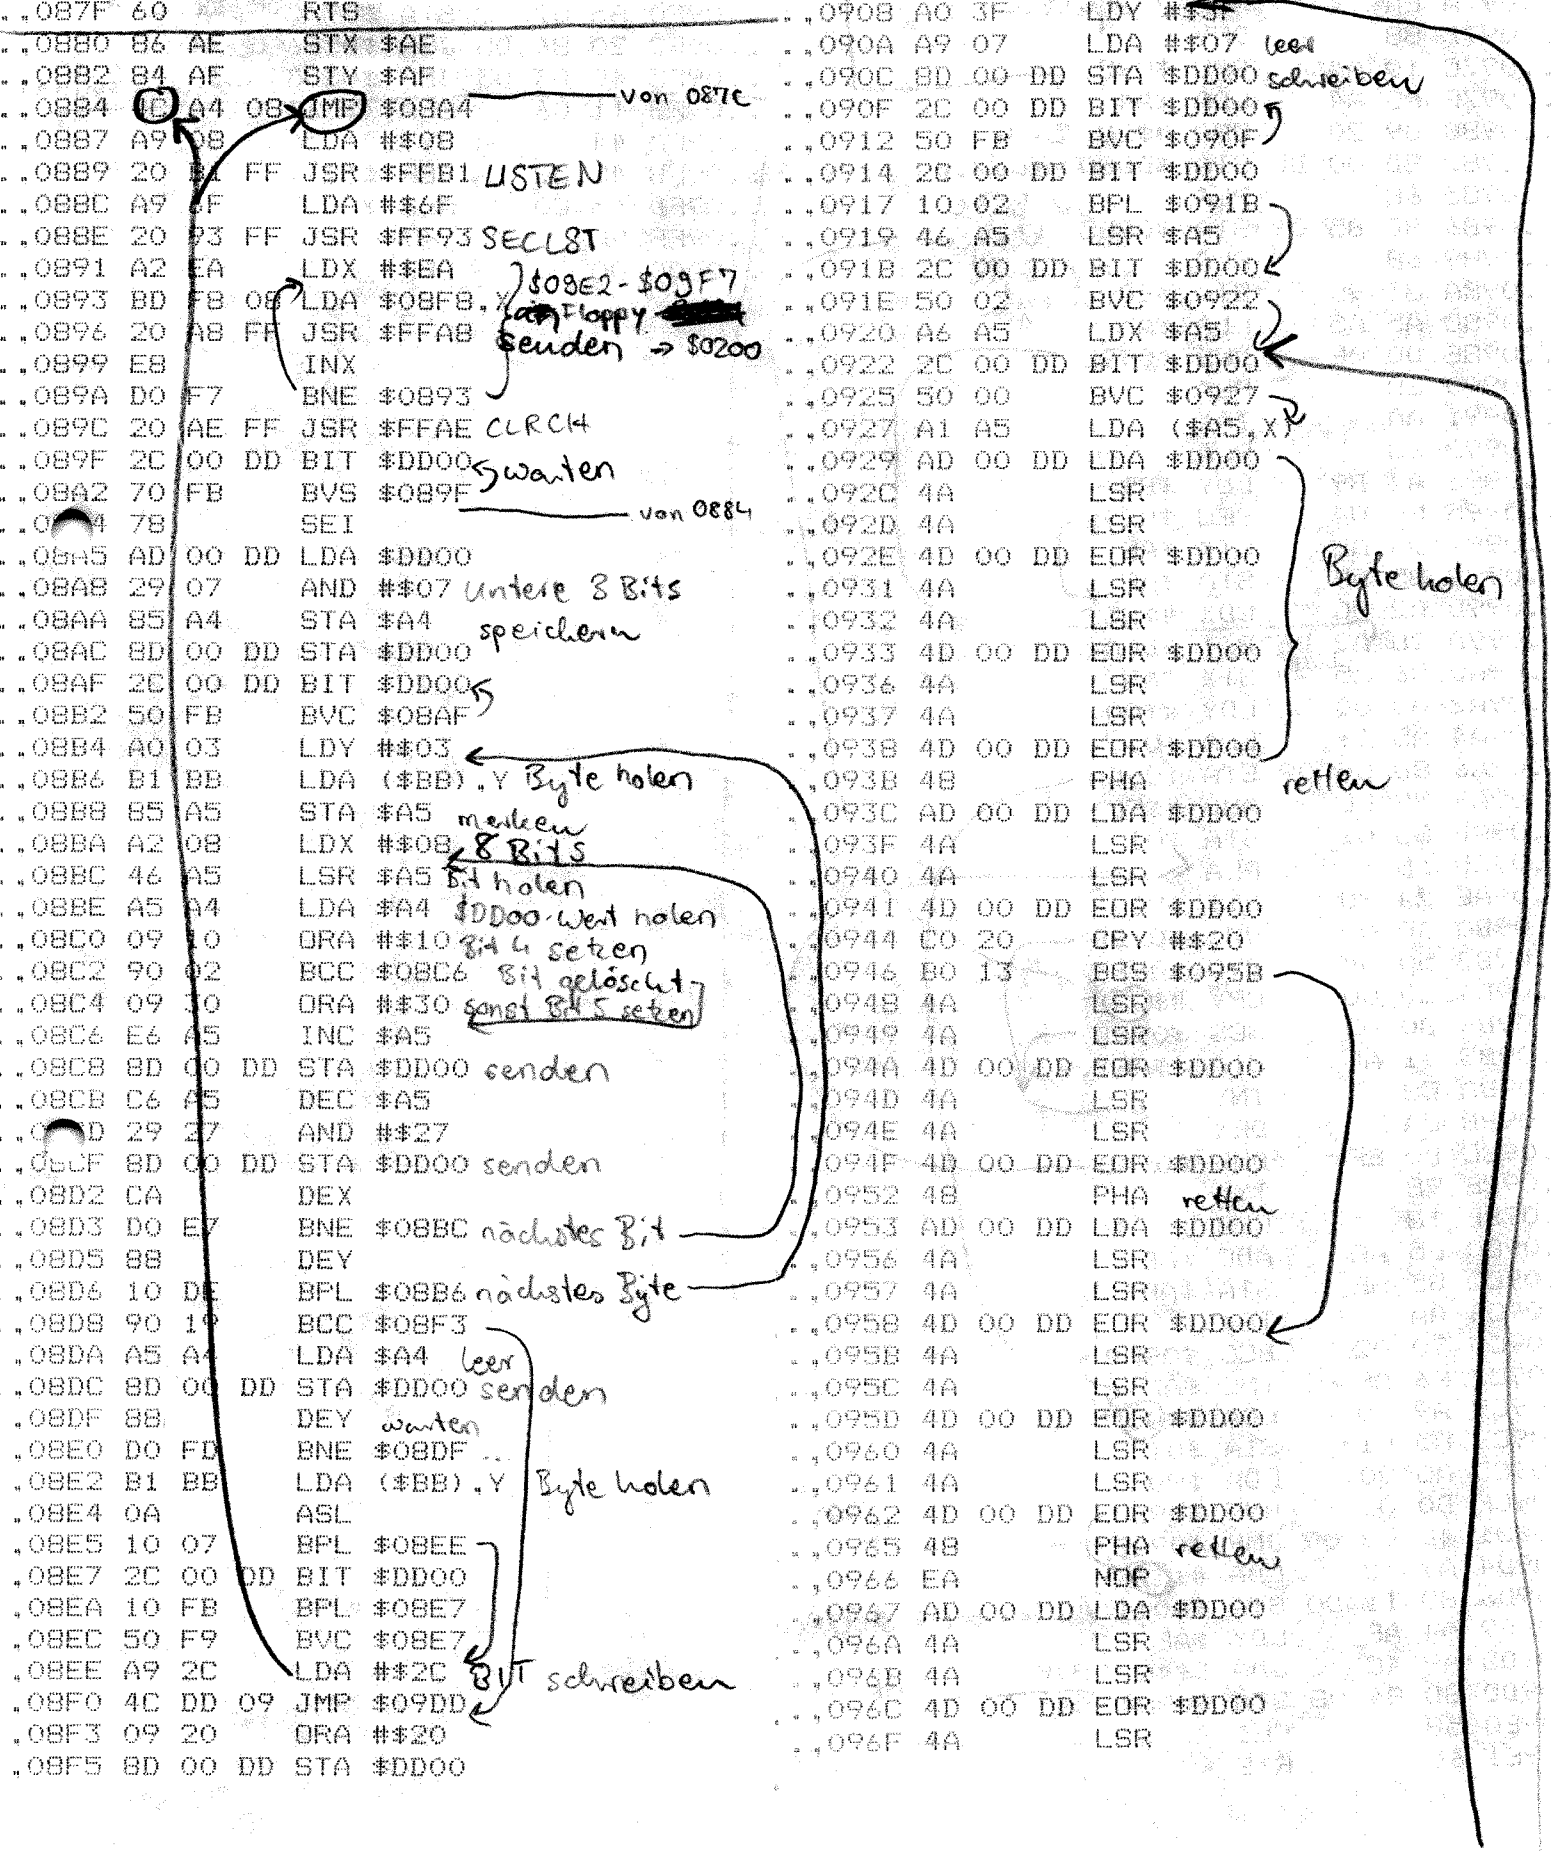 ..087F 60 RTS
..0880 86 AE STX $AE
..0882 84 AF STY $AF
..0884 4C A4 08 JMP $08A4 von 087C
..0887 A9 08 LDA #$08
..0889 20 B1 FF JSR $FFB1 LISTEN
..088C A9 6F LDA #$6F
..088E 20 93 FF JSR $FF93 SECLST
..0891 A2 EA LDX #$EA $09E2-$09F7
..0893 BD F8 08 LDA $08F8,X an Floppy
..0896 20 A8 FF JSR $FFA8 senden → $0200
..0899 E8 INX
..089A D0 F7 BNE $0893
..089C 20 AE FF JSR $FFAE CLRCH
..089F 2C 00 DD BIT $DD00 warten
..08A2 70 FB BVS $089F
4 78 SEI von 0884
..08A5 AD 00 DD LDA $DD00
..08A8 29 07 AND #$07 Untere 3 Bits
..08AA 85 A4 STA $A4 speichern
..08AC 8D 00 DD STA $DD00
..08AF 2C 00 DD BIT $DD00
..08B2 50 FB BVC $08AF
..08B4 A0 03 LDY #$03
..08B6 B1 BB LDA ($BB),Y Byte holen
..08B8 85 A5 STA $A5 merken
..08BA A2 08 LDX #$08 8 Bits
..08BC 46 A5 LSR $A5 Bit holen
..08BE A5 A4 LDA $A4 $DD00-Wert holen
..08C0 09 10 ORA #$10 Bit 4 setzen
..08C2 90 02 BCC $08C6 Bit gelöscht
..08C4 09 30 ORA #$30 sonst Bit 5 setzen
..08C6 E6 A5 INC $A5
..08C8 8D 00 DD STA $DD00 senden
..08CB C6 A5 DEC $A5
D 29 27 AND #$27
..08CF 8D 00 DD STA $DD00 senden
..08D2 CA DEX
..08D3 D0 E7 BNE $08BC nächstes Bit
..08D5 88 DEY
.,08D6 10 DE BPL $08B6 nächstes Byte
.,08D8 90 19 BCC $08F3
.,08DA A5 A4 LDA $A4 leer
.,08DC 8D 00 DD STA $DD00 senden
.,08DF 88 DEY warten
.,08E0 D0 FD BNE $08DF
.,08E2 B1 BB LDA ($BB),Y Byte holen
.,08E4 0A ASL
.,08E5 10 07 BPL $08EE
.,08E7 2C 00 DD BIT $DD00
.,08EA 10 FB BPL $08E7
.,08EC 50 F9 BVC $08E7
.,08EE A9 2C LDA #$2C BIT schreiben
.,08F0 4C DD 09 JMP $09DD
.,08F3 09 20 ORA #$20
.,08F5 8D 00 DD STA $DD00
..,0908 A0 3F LDY #$3F
..,090A A9 07 LDA #$07 leer
..,090C 8D 00 DD STA $DD00 schreiben
..,090F 2C 00 DD BIT $DD00
..,0912 50 FB BVC $090F
..,0914 2C 00 DD BIT $DD00
..,0917 10 02 BPL $091B
..,0919 46 A5 LSR $A5
..,091B 2C 00 DD BIT $DD00
..,091E 50 02 BVC $0922
..,0920 A6 A5 LDX $A5
..,0922 2C 00 DD BIT $DD00
..,0925 50 00 BVC $0927
..,0927 A1 A5 LDA ($A5,X)
..,0929 AD 00 DD LDA $DD00
..,092C 4A LSR
..,092D 4A LSR
..,092E 4D 00 DD EOR $DD00 Byte holen
..,0931 4A LSR
..,0932 4A LSR
..,0933 4D 00 DD EOR $DD00
..,0936 4A LSR
..,0937 4A LSR
..,0938 4D 00 DD EOR $DD00
..,093B 48 PHA retten
..,093C AD 00 DD LDA $DD00
..,093F 4A LSR
..,0940 4A LSR
..,0941 4D 00 DD EOR $DD00
..,0944 C0 20 CPY #$20
..,0946 B0 13 BCS $095B
..,0948 4A LSR
..,0949 4A LSR
..,094A 4D 00 DD EOR $DD00
..,094D 4A LSR
..,094E 4A LSR
..,094F 4D 00 DD EOR $DD00
..,0952 48 PHA retten
..,0953 AD 00 DD LDA $DD00
..,0956 4A LSR
..,0957 4A LSR
..,0958 4D 00 DD EOR $DD00
..,095B 4A LSR
..,095C 4A LSR
..,095D 4D 00 DD EOR $DD00
..,0960 4A LSR
..,0961 4A LSR
..,0962 4D 00 DD EOR $DD00
..,0965 48 PHA retten
..,0966 EA NOP
..,0967 AD 00 DD LDA $DD00
..,096A 4A LSR
..,096B 4A LSR
..,096C 4D 00 DD EOR $DD00
..,096F 4A LSR